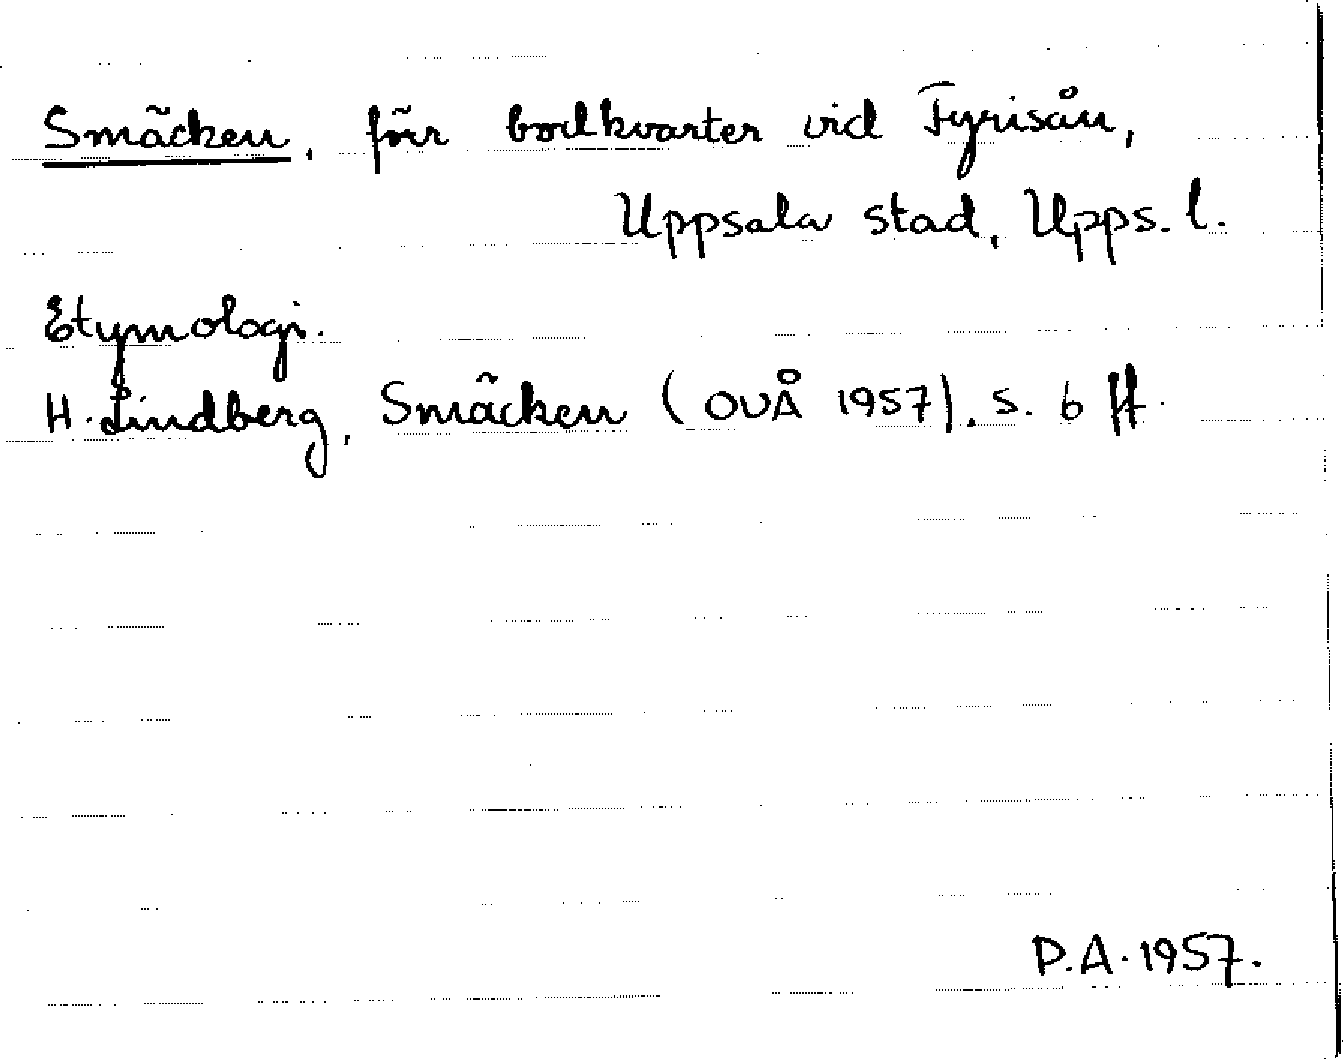 Smäcken, förr bodkvarter vid Fyrisån,
Uppsala stad, Upps. l.
Etymologi.
H. Lindberg, Smäcken (OUÅ 1957), s. 6 ff.
P.A. 1957.